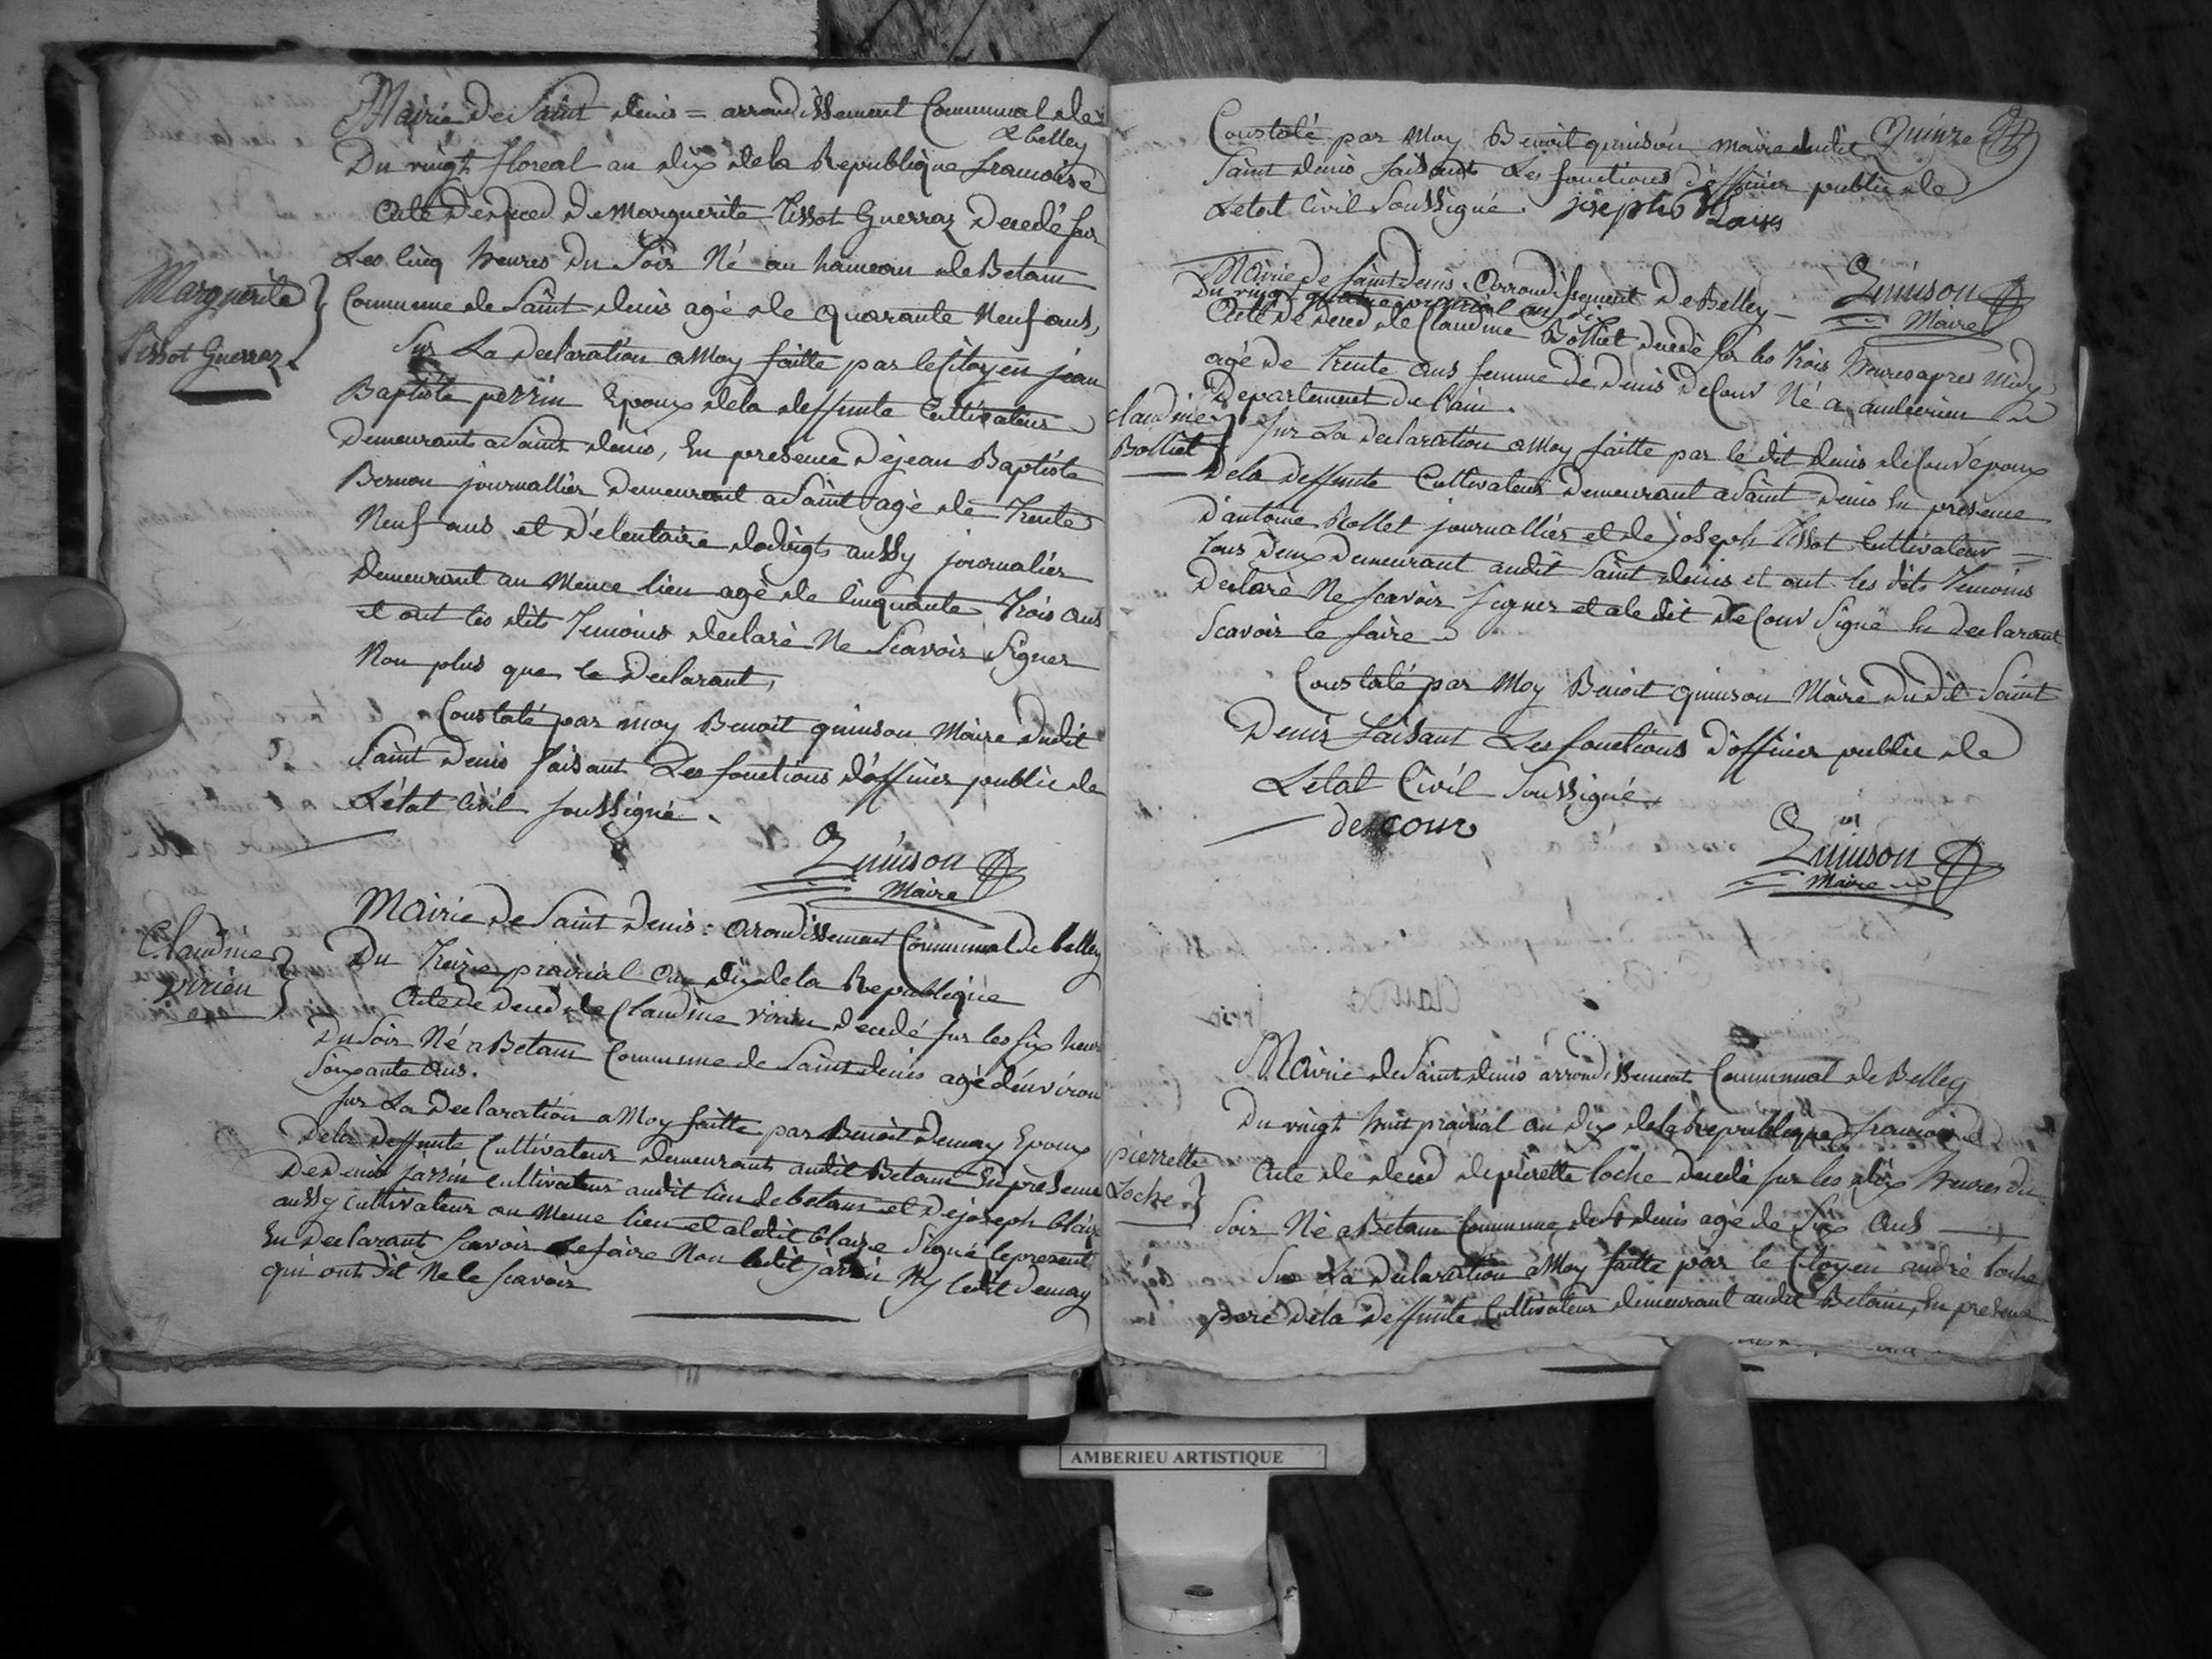 Mairie de Saint denis = arrondissement Communal de
Belley
Du vingt floreal an dix de la Republique francoise
Acte de deced de Marguerite Tissot Guerraz Decedé sur
Les cinq heures Du Soir Né au hameau de Betam
Marguerite
Tissot Guerraz
Commune de Saint denis agé de quarante Neuf ans,
Sur La declaration a Moy faitte par le Citoyen jean
Baptiste perrin Epoux dela deffunte Cultivateur
Demeurant a Saint denis, En presence de jean Baptiste
Bernon journallier Demeurant a Saint agé de Trente
Neuf ans et d'elentaire aussy journalier
Demeurant au Meme lieu agé de Cinquante Trois ans
et ont les dits Temoins declaré Ne Scavoir Signer
Non plus que le Declarant,
Constaté par moy Benoit quinson Maire dudit
Saint Denis faisant Les fonctions d'officier public de
L'état Civil soussigné.
Quinson
Maire
Mairie de Saint Denis : arondissement Communal de belley
Claudine
virien
Du Treize prairial an dix de la Republique
Acte de deced de Claudine virien decedé sur les six heures
Du Soir Né a Betam Commune de Saint denis agé d'environ
Soixante ans.
sur La Declaration a Moy faitte par Benoit Demay Epoux
Dela deffunte Cultivateur demeurant audit Betam En presence
De Denis jarrin cultivateur audit lieu de betam et de joseph blaise
aussy cultivateur au Meme lieu et a ledit blaise Signé le present
En declarant Scavoir le faire Non ledit jarrin Ny ledit Demay
qui ont dit Ne le scavoir
Quinze
Constaté par Moy Benoit quinson maire dudit
Saint denis faisant Les fonctions d'officier public de
Letat Civil Soussigné. joseph Blaise
Quinson
Maire
Mairie de Saint denis. Arrondissement De Belley
Du vingt quatre prairial an dix
Acte de deced de Claudine Bolliet decedé sur les Trois heures apres Midy
agé de Trente ans femme de Denis Decour Né a ambérieu
Departement de l'ain.
Claudine
Bolliet
Sur La declaration a Moy faitte par le dit denis decour époux
Dela deffunte Cultivateur Demeurant a Saint Denis En presence
D'antoine Rollet journallier et de joseph Tissot Cultivateur
Tous deux demeurant audit Saint denis et ont les dits Temoins
Declaré Ne scavoir signer et a le dit decour Signé En declarant
Scavoir le faire
Constaté par Moy Benoit quinson Maire du dit Saint
Denis faisant Les fonctions d'officier public de
Letat Civil Soussigné
descour
Quinson
Maire
Mairie de Saint denis arrondissement Communal de Belley
Du vingt huit prairial an dix de la republique francoise
pierrette
Loche
Acte de deced de pierette loche decedé sur les dix heures du
Soir Né a Betam Commune de St denis agé de Six ans
Sur La declaration a Moy faitte par le Citoyen andré loche
pere Dela Deffunte Cultivateur demeurant audit Betam, En presence
AMBERIEU ARTISTIQUE